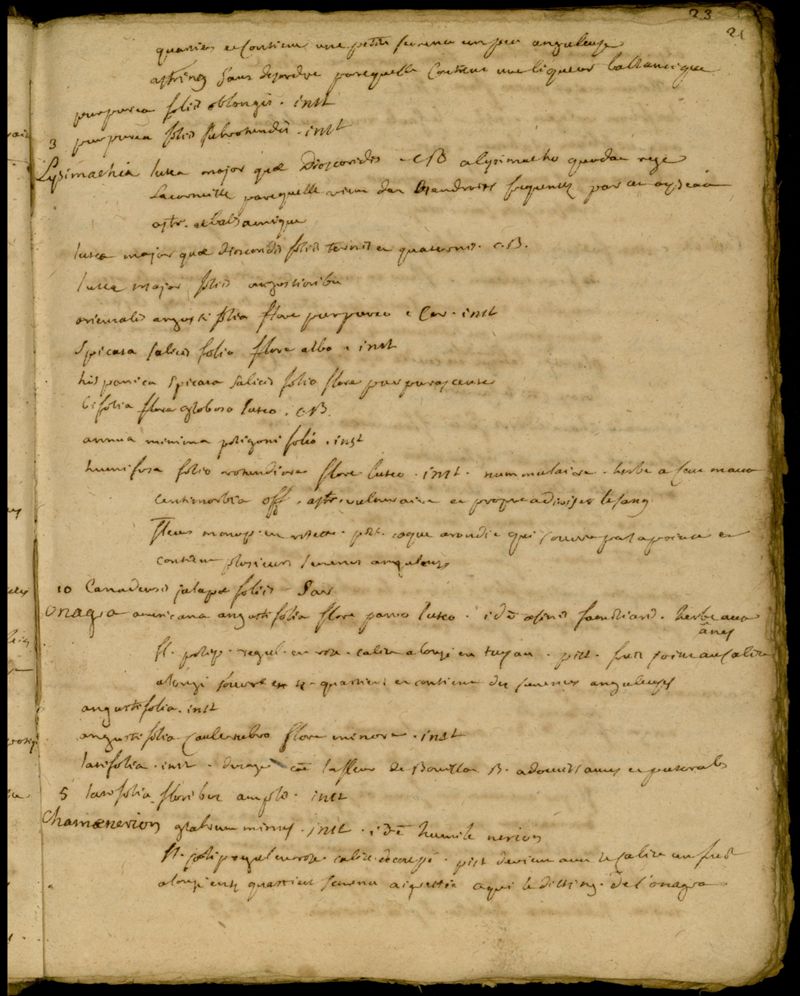 23
21
quartiers et contient une petite semence un peu anguleuse
astring sans desordre parcequelle contient une liqueur balsamique
purpurea foliis oblongis. inst
3 purpurea foliis subrotundis. inst
Lysimachia lutea major quæ Dioscoridis. CB a lysimacho quodam rege
la corneille parcequelle vient dans endroits frequentez par cet oyseau
astr. et balsamique
lutea major quæ dioscoridis foliis ternis et quaternis. C.B.
lutea major foliis angustioribus
orientalis angustifolia flore purpureo. Cor. inst
Spicata salicis folio flore albo. inst
hispanica spicata salicis folio flore purpurascente
bifolia flore globoso luteo. CB.
annua minima poligoni folio. inst
humifusa folio rotundiore flore luteo. inst. nummulaire. herbe a cent maux
centimorbia off. astr. vulneraire et propre a diviser le sang
fleurs monop. en rosette. pist. coque arondie qui s'ouvre par la pointe et
contient plusieurs semences anguleuses
10 Canadensis jalapæ foliis. Sar
Onagra americana angustifolia flore parvo luteo. idē asinis familiaris. herbe aux
ânes
fl. polip. regul. en rose. calice alongé en tuyau. pist. fruit joint au calice
alongé s'ouvre en 4. quartiers et contient des semences anguleuses
angustifolia. inst
angustifolia caule rubro flore minore. inst
latifolia. inst. la fleur de Bouillon B.
5 latifolia floribus amplis. inst
Chamænerion glabrum minus. inst. idē humile nerion
fl. polip regul en rose calice decoupé. pist devient avec le calice un fruit
alongé en 4 quartiers semence aigrettée a qui le disting. de l'onagra